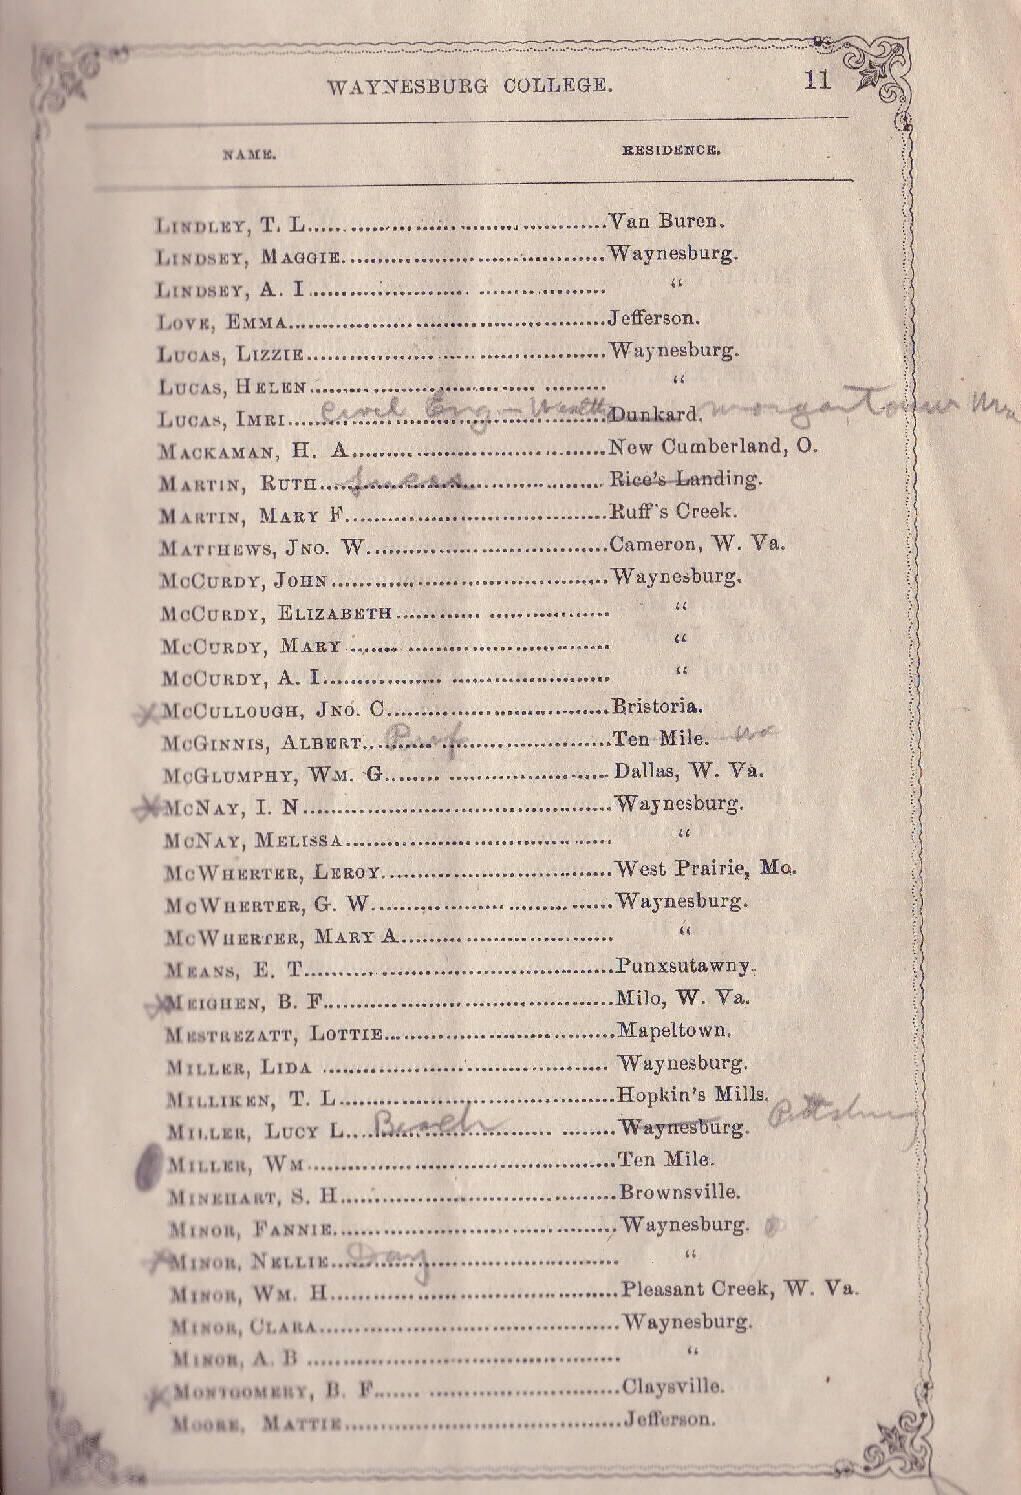 WAYNESBURG COLLEGE. 11
NAME. RESIDENCE.
LINDLEY, T. L. Van Buren.
LINDSEY, MAGGIE. Waynesburg.
LINDSEY, A. I. "
LOVE, EMMA. Jefferson.
LUCAS, LIZZIE. Waynesburg.
LUCAS, HELEN. "
LUCAS, IMRI. Civil Eng - Dunkard. Morgantown
MACKAMAN, H. A. New Cumberland, O.
MARTIN, RUTH. Rice's Landing.
MARTIN, MARY F. Ruff's Creek.
MATTHEWS, JNO. W. Cameron, W. Va.
McCURDY, JOHN. Waynesburg.
McCURDY, ELIZABETH. "
McCURDY, MARY. "
McCURDY, A. I. "
x McCULLOUGH, JNO. C. Bristoria.
McGINNIS, ALBERT. Prof Ten Mile.
McGLUMPHY, WM. G. Dallas, W. Va.
x McNAY, I. N. Waynesburg.
McNAY, MELISSA. "
McWHERTER, LEROY. West Prairie, Mo.
McWHERTER, G. W. Waynesburg.
McWHERTER, MARY A. "
MEANS, E. T. Punxsutawny.
x MEIGHEN, B. F. Milo, W. Va.
MESTREZATT, LOTTIE. Mapeltown.
MILLER, LIDA. Waynesburg.
MILLIKEN, T. L. Hopkin's Mills.
MILLER, LUCY L. Beach Waynesburg. Pittsburg
MILLER, WM. Ten Mile.
MINEHART, S. H. Brownsville.
MINOR, FANNIE. Waynesburg.
x MINOR, NELLIE. Day "
MINOR, WM. H. Pleasant Creek, W. Va.
MINOR, CLARA. Waynesburg.
MINOR, A. B. "
x MONTGOMERY, B. F. Claysville.
MOORE, MATTIE. Jefferson.